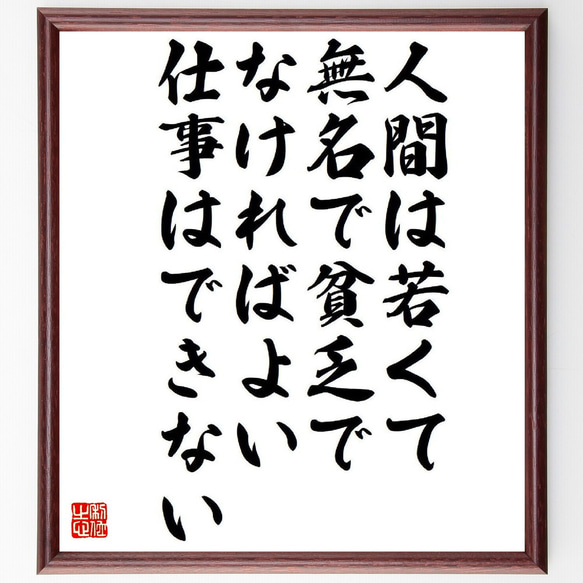 人間は若くて
無名で貧乏で
なければよい
仕事はできない